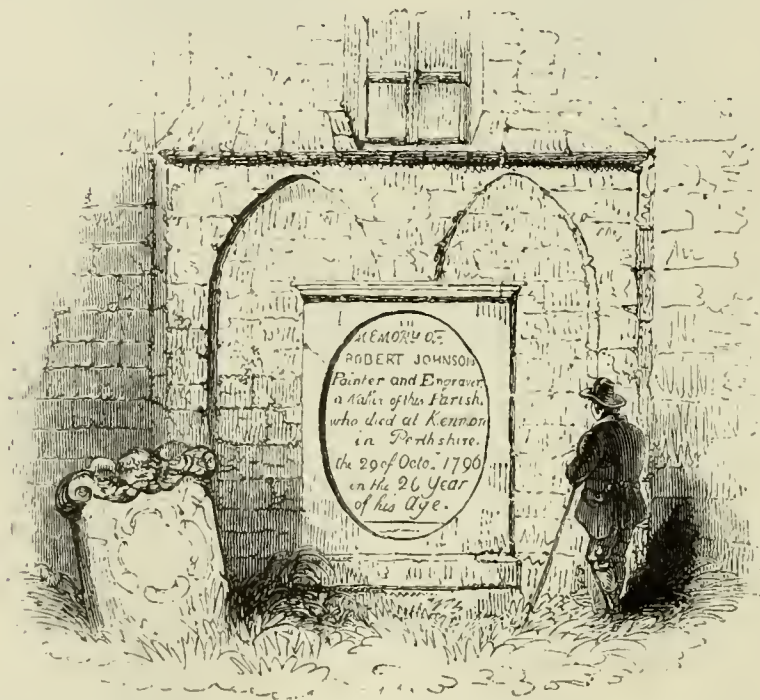 MEMORY OF
ROBERT JOHNSON
Painter and Engraver,
a Native of this Parish,
who died at Kenmore
in Perthshire.
the 29 of Octo. 1796
in the 26 Year
of his Age.